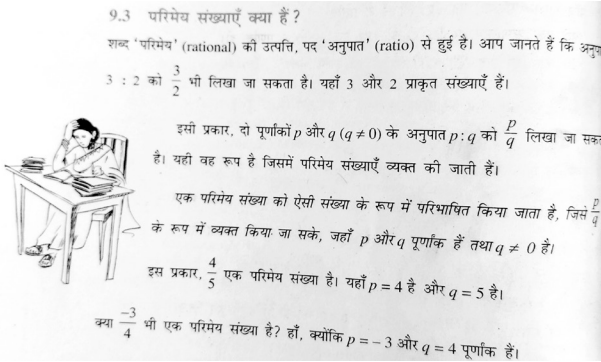 9.3 परिमेय संख्याएँ क्या हैं ?
शब्द ‘परिमेय’ (rational) की उत्पत्ति, पद ‘अनुपात’ (ratio) से हुई है। आप जानते हैं कि
3 : 2 को 3/2 भी लिखा जा सकता है। यहाँ 3 और 2 प्राकृत संख्याएँ हैं।
इसी प्रकार, दो पूर्णांकों p और q (q ≠ 0) के अनुपात p : q को p/q लिखा जा
है। यही वह रूप है जिसमें परिमेय संख्याएँ व्यक्त की जाती हैं।
एक परिमेय संख्या को ऐसी संख्या के रूप में परिभाषित किया जाता है, जिसे p/q
के रूप में व्यक्त किया जा सके, जहाँ p और q पूर्णांक हैं तथा q ≠ 0 है।
इस प्रकार, 4/5 एक परिमेय संख्या है। यहाँ p = 4 है और q = 5 है।
क्या -3/4 भी एक परिमेय संख्या है? हाँ, क्योंकि p = – 3 और q = 4 पूर्णांक हैं।